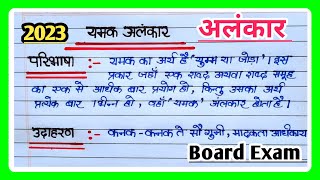 2023
यमक अलंकार
अलंकार
परिभाषा :- यमक का अर्थ है 'युग्म या जोड़ा'। इस
प्रकार जहाँ एक शब्द अथवा शब्द समूह
का एक से अधिक बार प्रयोग हो, किन्तु उसका अर्थ
प्रत्येक बार भिन्न हो, वहाँ 'यमक' अलंकार होता है।
उदाहरण :- कनक-कनक ते सौ गुनी, मादकता अधिकाय
Board Exam